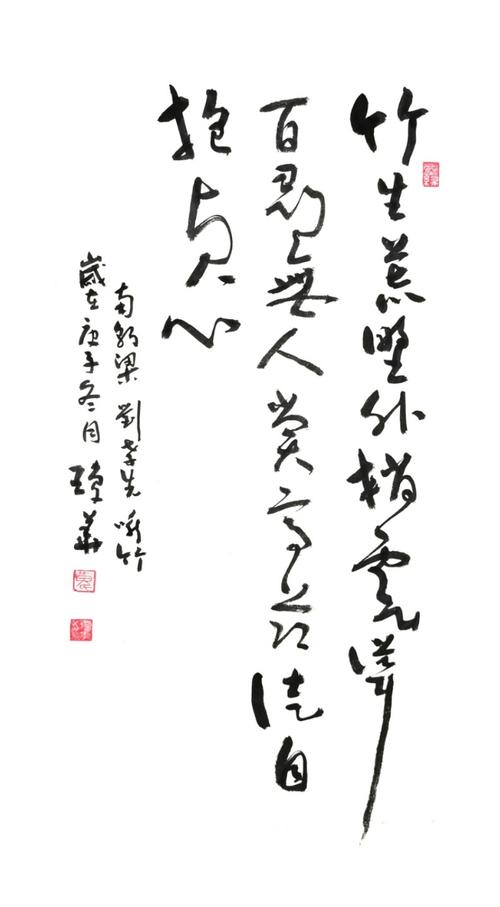 竹生荒野外梢雲聳
百尋無人賞高節徒自
抱貞心
南朝梁劉孝先咏竹
歲在庚子冬月瓊華